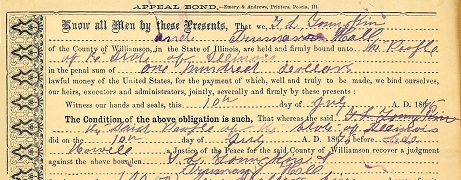 APPEAL BOND.—Emery & Andrews, Printers, Peoria, Ill.
Know all Men by these Presents, That we, T L Tompkins
and Hall
of the County of Williamson, in the State of Illinois, are held and firmly bound unto The People
of the State of Illinois
in the penal sum of One hundred dollars
lawful money of the United States, for the payment of which, well and truly to be made, we bind ourselves,
our heirs, executors and administrators, jointly, severally and firmly by these presents:
Witness our hands and seals, this 10th day of July A. D. 186
The Condition of the above obligation is such, That whereas the said T. L. Tompkins
the Said People of the State of Illinois
did on the 10th day of July A. D. 186 before Geo
a Justice of the Peace for the said County of Williamson recover a judgment
against the above bounden T L Tompkins &
Hall